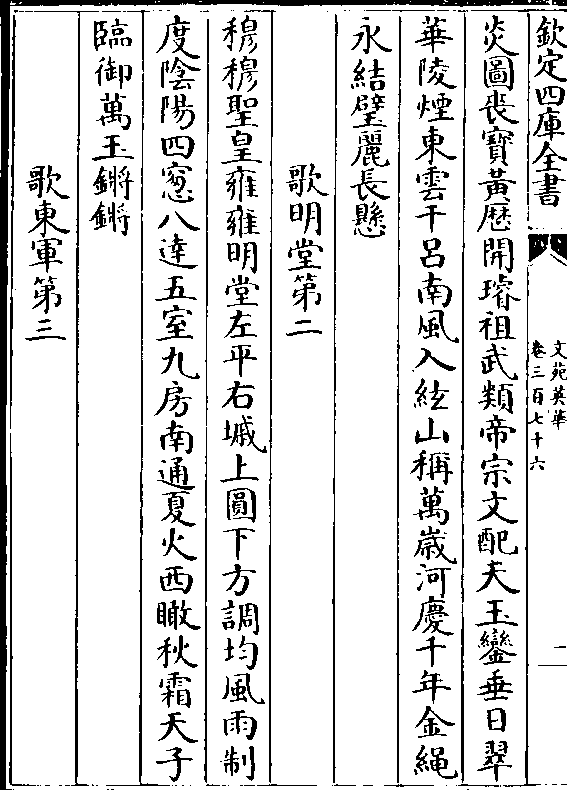 欽定四庫全書
文苑英華
卷三百七十六
二
炎圖喪寳黃厯開璿祖武類帝宗文配天玉鑾垂日翠
華陵煙東雲干呂南風入絃山稱萬嵗河慶千年金繩
永結璧麗長懸
歌明堂第二
穆穆聖皇雍雍明堂左平右墄上圓下方調均風雨制
度陰陽四窓八達五室九房南通夏火西瞰秋霜天子
臨御萬玉鏘鏘
歌東軍第三